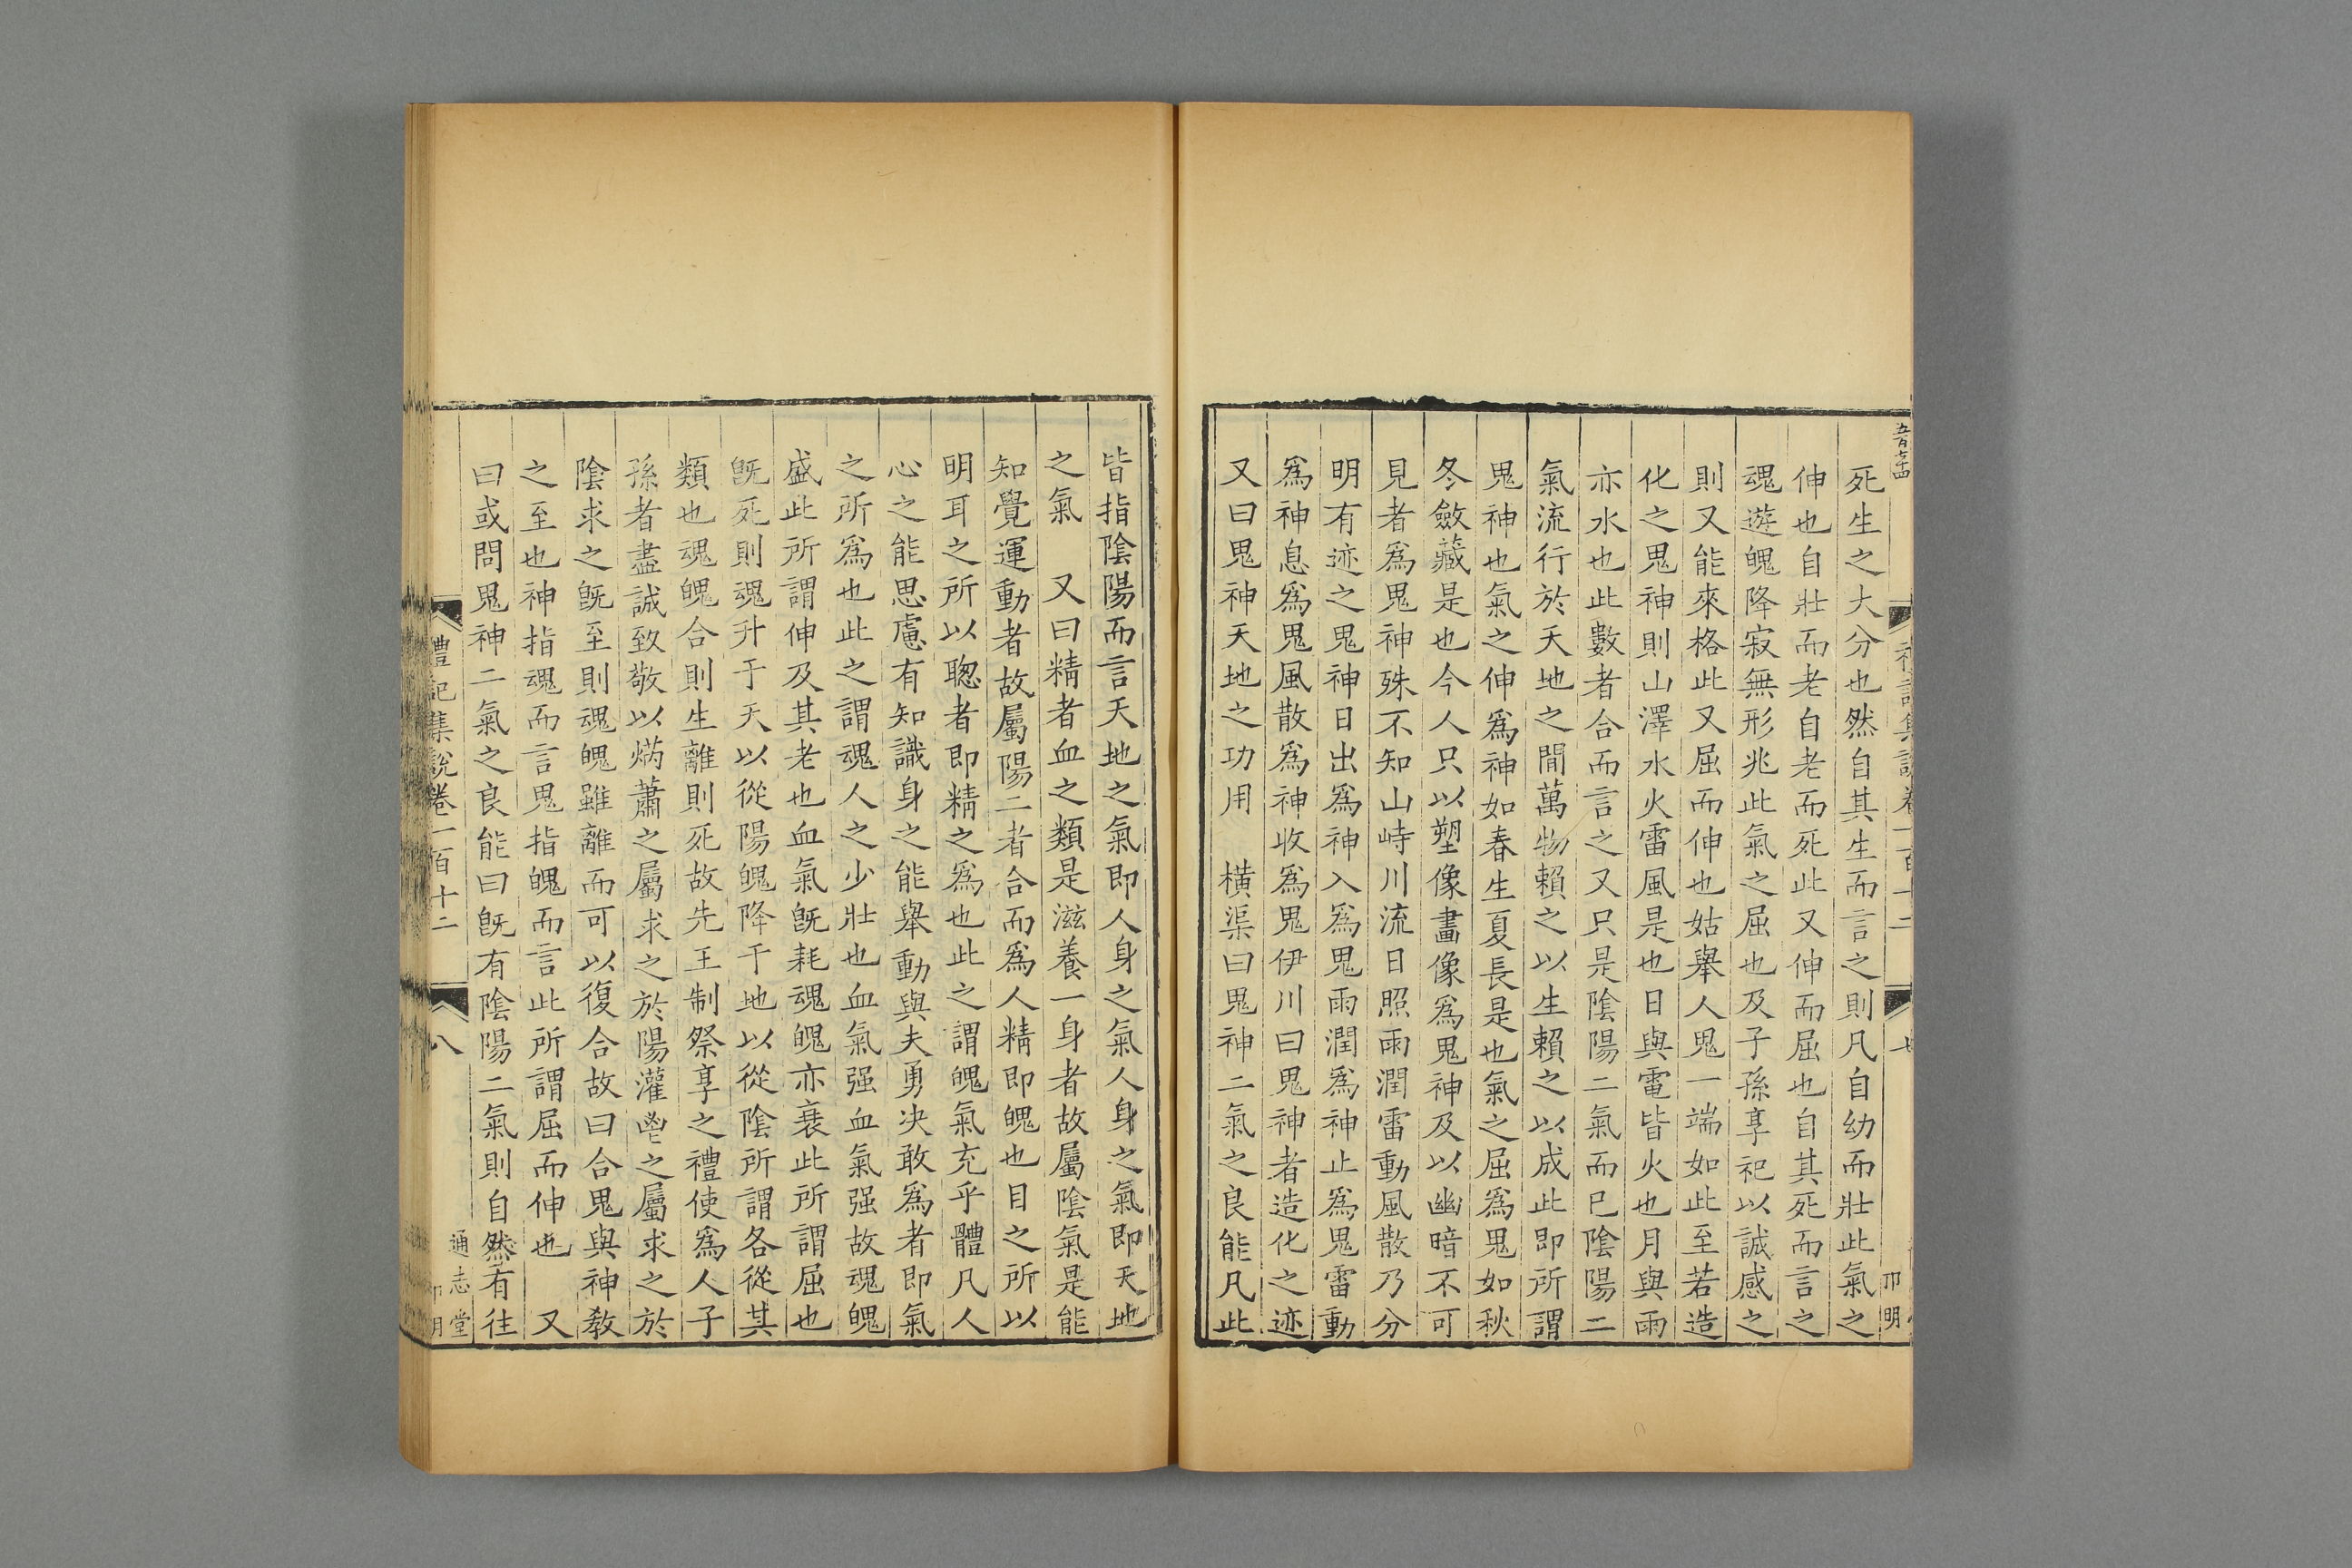 死生之大分也然自其生而言之則凡自幼而壯此氣之
伸也自壯而老自老而死此又伸而屈也自其死而言之
魂遊魄降寂無形兆此氣之屈也及子孫享祀以誠感之
則又能來格此又屈而伸也姑舉人鬼一端如此至若造
化之鬼神則山澤水火雷風是也日與電皆火也月與雨
亦水也此數者合而言之又只是陰陽二氣而已陰陽二
氣流行於天地之間萬物賴之以生賴之以成此即所謂
鬼神也氣之伸爲神如春生夏長是也氣之屈爲鬼如秋
冬斂藏是也今人只以塑像畫像爲鬼神及以幽暗不可
見者爲鬼神殊不知山峙川流日照雨潤雷動風散乃分
明有迹之鬼神日出爲神入爲鬼雨潤爲神止爲鬼雷動
爲神息爲鬼風散爲神收爲鬼伊川曰鬼神者造化之迹
又曰鬼神天地之功用　橫渠曰鬼神二氣之良能凡此
皆指陰陽而言天地之氣即人身之氣人身之氣即天地
之氣　又曰精者血之類是滋養一身者故屬陰氣是能
知覺運動者故屬陽二者合而爲人精即魄也目之所以
明耳之所以聰者即精之爲也此之謂魄氣充乎體凡人
心之能思慮有知識身之能舉動與夫勇決敢爲者即氣
之所爲也此之謂魂人之少壯也血氣强血氣强故魂魄
盛此所謂伸及其老也血氣旣耗魂魄亦衰此所謂屈也
旣死則魂升于天以從陽魄降于地以從陰所謂各從其
類也魂魄合則生離則死故先王制祭享之禮使爲人子
孫者盡誠致敬以焫蕭之屬求之於陽灌鬯之屬求之於
陰求之旣至則魂魄雖離而可以復合故曰合鬼與神敎
之至也神指魂而言鬼指魄而言此所謂屈而伸也　又
曰或問鬼神二氣之良能曰旣有陰陽二氣則自然有往
禮記集說卷一百十二
八
通志堂